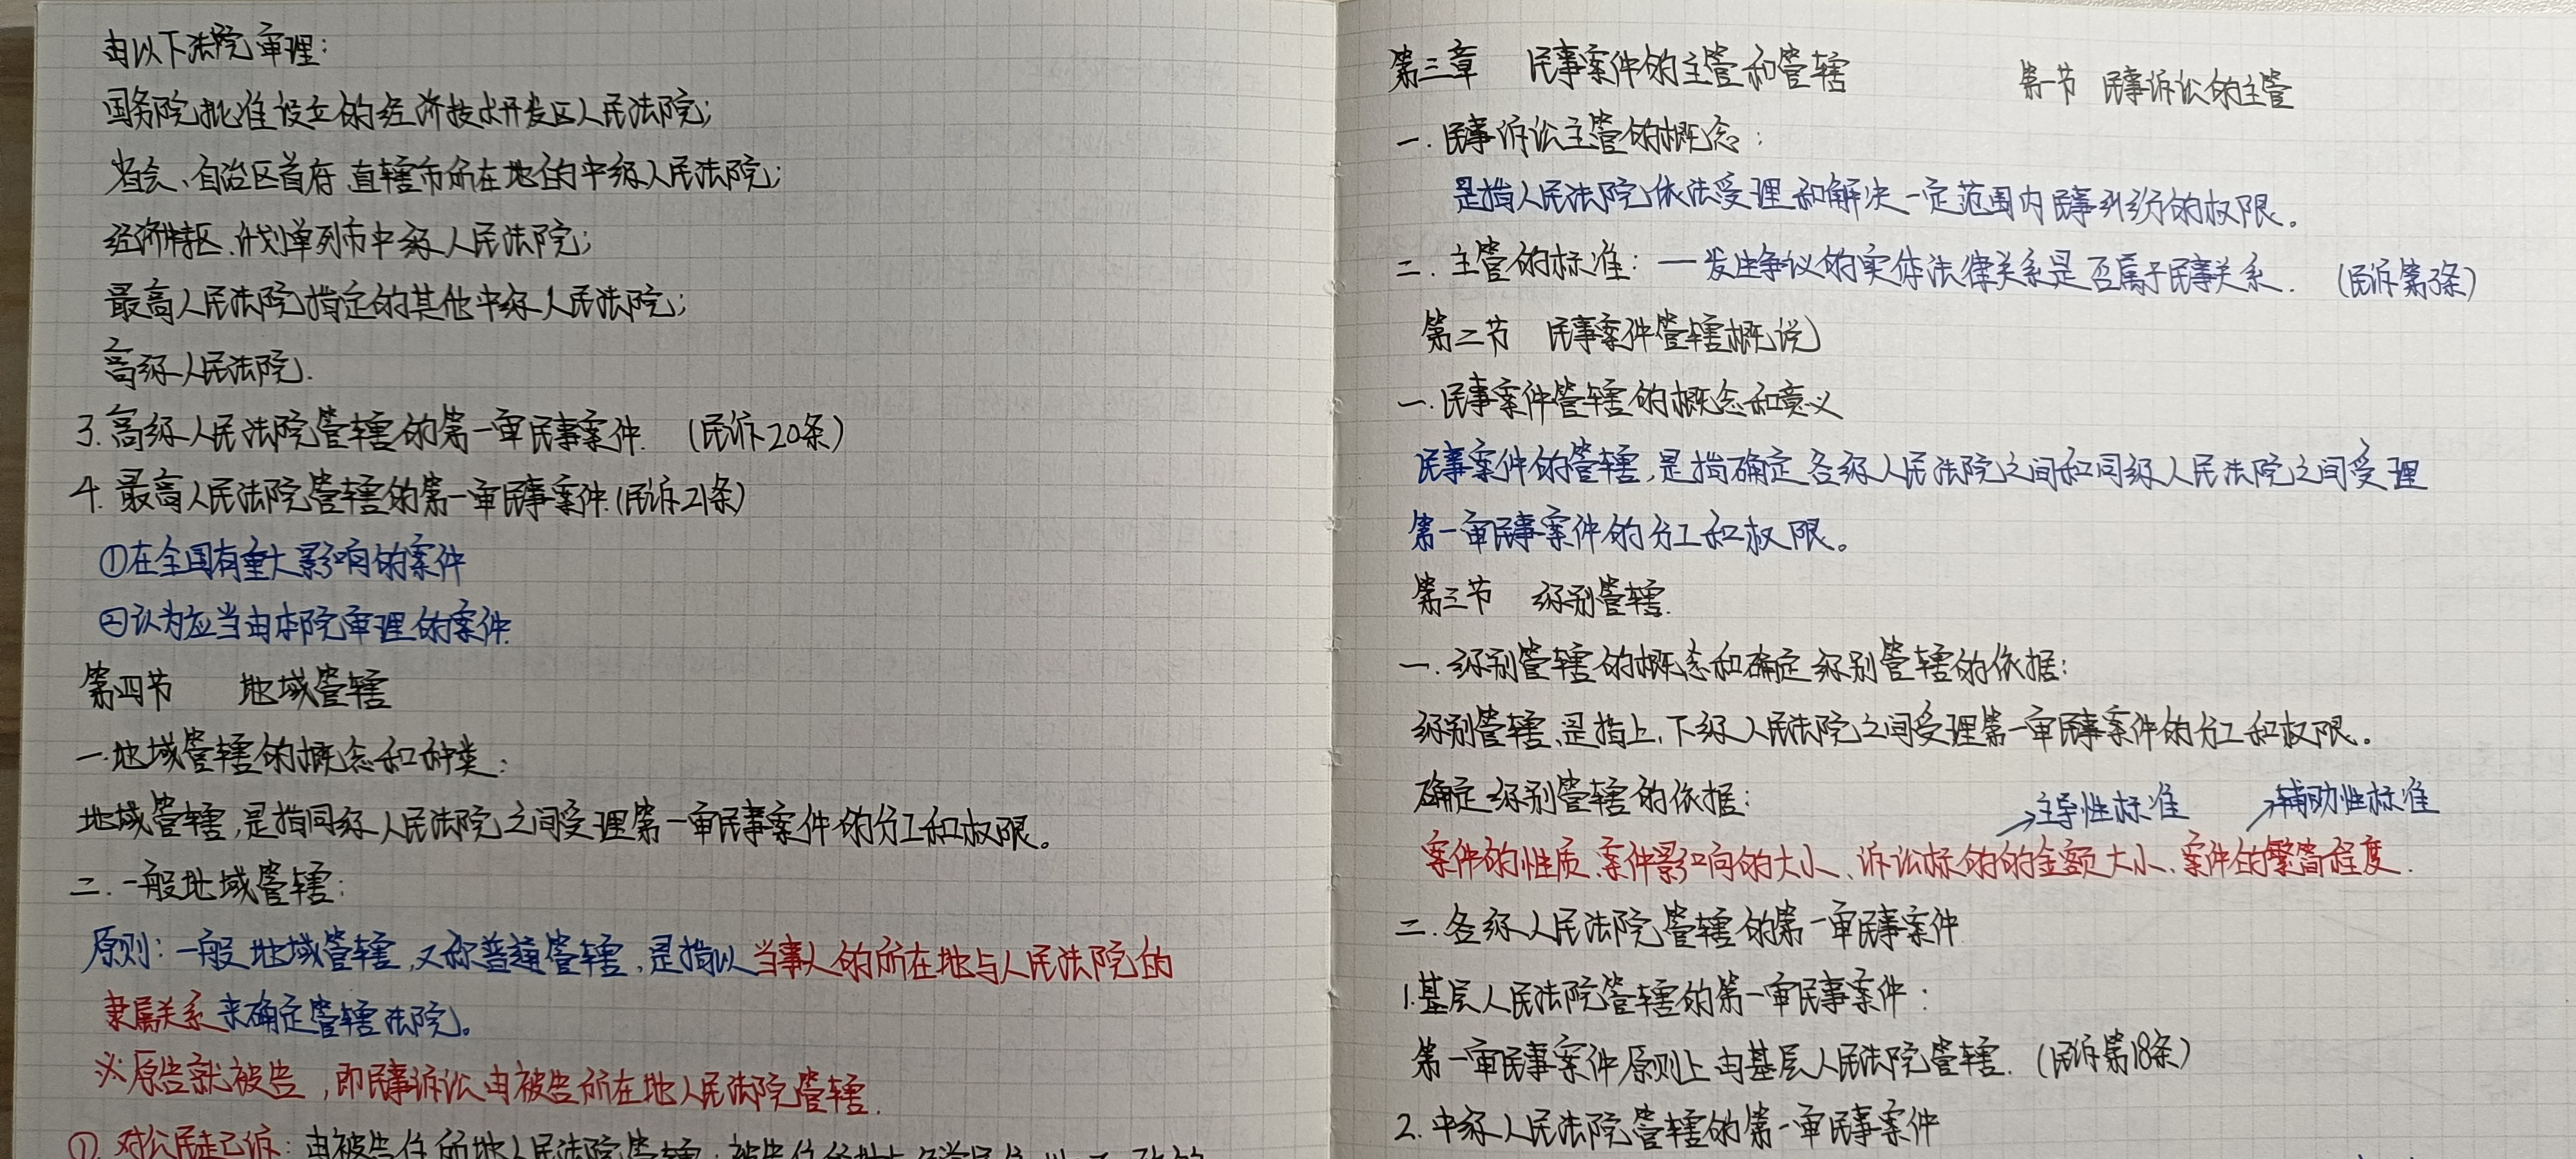 由以下法院审理：
国务院批准设立的经济技术开发区人民法院；
省会、自治区首府、直辖市所在地的中级人民法院；
经济特区、计划单列市中级人民法院；
最高人民法院指定的其他中级人民法院；
高级人民法院.
3.高级人民法院管辖的第一审民事案件. (民诉20条)
4.最高人民法院管辖的第一审民事案件.(民诉21条)
①在全国有重大影响的案件
②认为应当由本院审理的案件.
第四节 地域管辖
一.地域管辖的概念和种类：
地域管辖,是指同级人民法院之间受理第一审民事案件的分工和权限。
二.一般地域管辖：
原则：一般地域管辖,又称普通管辖,是指以当事人的所在地与人民法院的
隶属关系来确定管辖法院。
※原告就被告,即民事诉讼由被告所在地人民法院管辖.
①.对公民提起诉：由被告住所地人民法院管辖；被告住所地与经常居住
第三章 民事案件的主管和管辖 第一节 民事诉讼的主管
一.民事诉讼主管的概念：
是指人民法院依法受理和解决一定范围内民事纠纷的权限。
二.主管的标准：—发生争议的实体法律关系是否属于民事关系. (民诉第3条)
第二节 民事案件管辖概说
一.民事案件管辖的概念和意义
民事案件的管辖,是指确定各级人民法院之间和同级人民法院之间受理
第一审民事案件的分工和权限。
第三节 级别管辖.
一.级别管辖的概念和确定级别管辖的依据：
级别管辖、是指上、下级人民法院之间受理第一审民事案件的分工和权限。
确定级别管辖的依据：
→主导性标准 →辅助性标准
案件的性质、案件影响的大小、诉讼标的的金额大小、案件的繁简程度.
二.各级人民法院管辖的第一审民事案件
1.基层人民法院管辖的第一审民事案件：
第一审民事案件原则上由基层人民法院管辖. (民诉第18条)
2.中级人民法院管辖的第一审民事案件